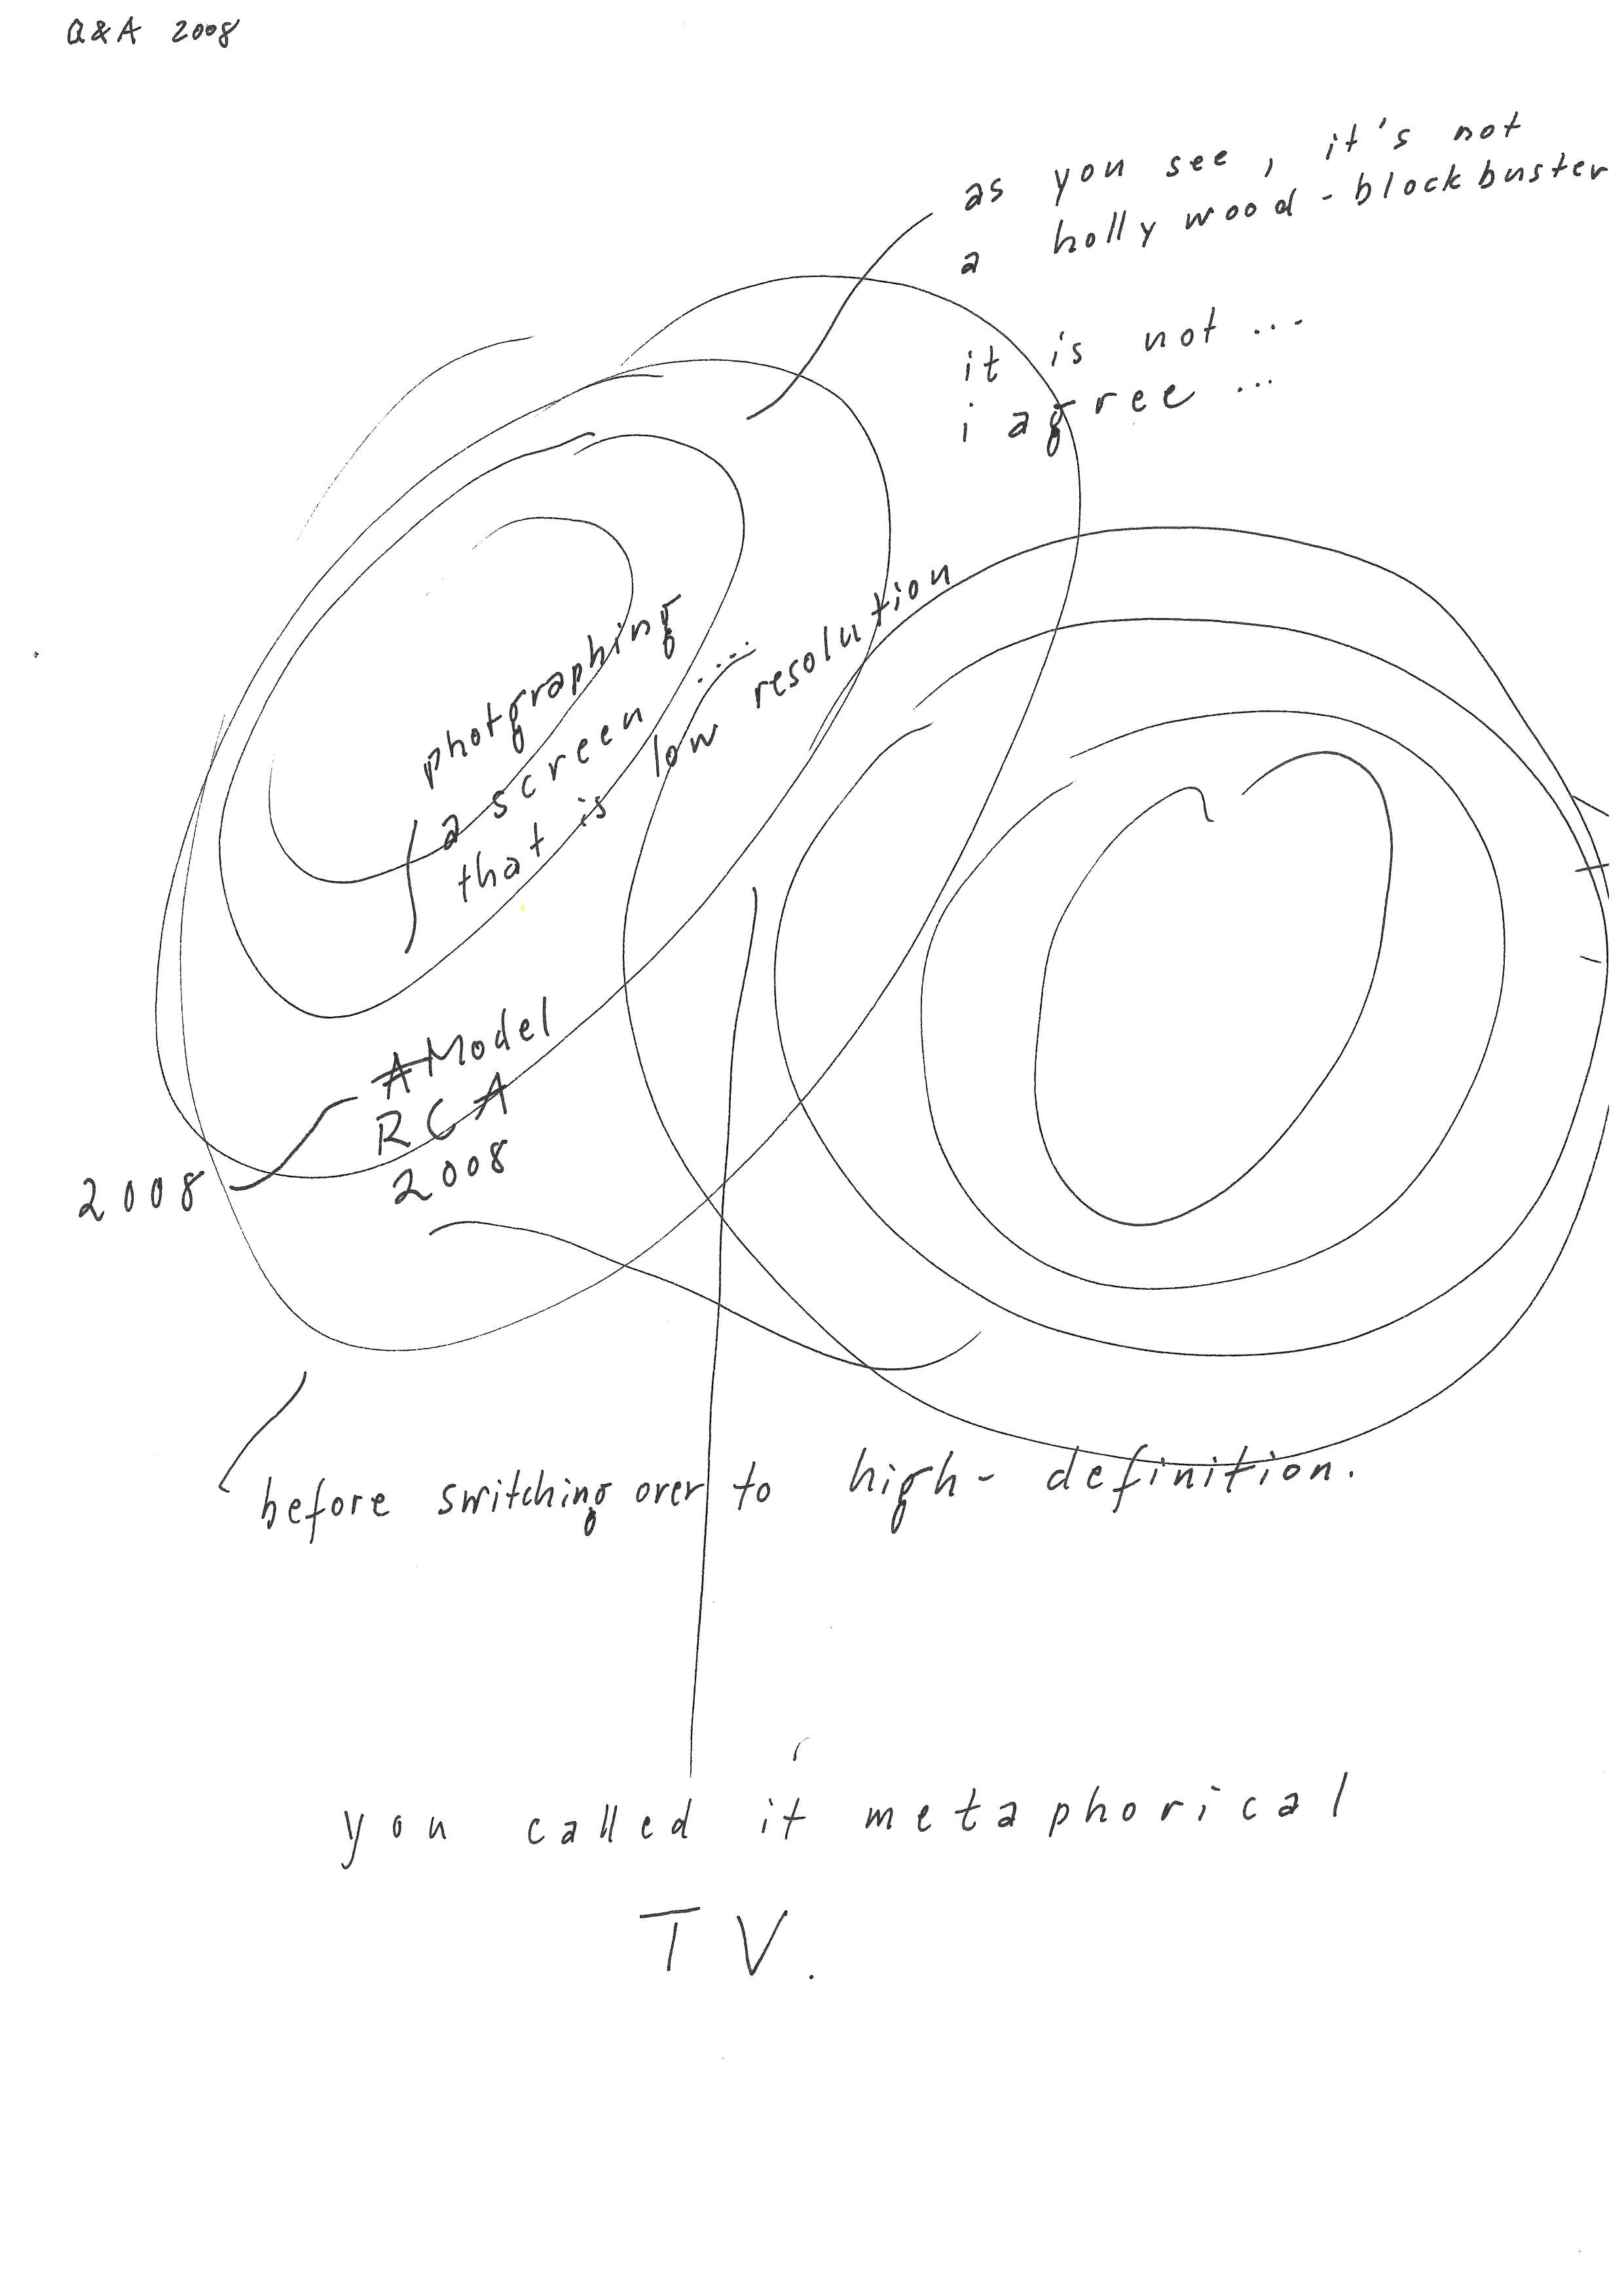 Q&A 2008
as you see, it's not
a hollywood-blockbuster
it is not ...
i agree ...
photgraphing
a screen .....
that is low resolution
A Model
RCA
2008
2008
before switching over to high-definition.
you called it metaphorical
TV.